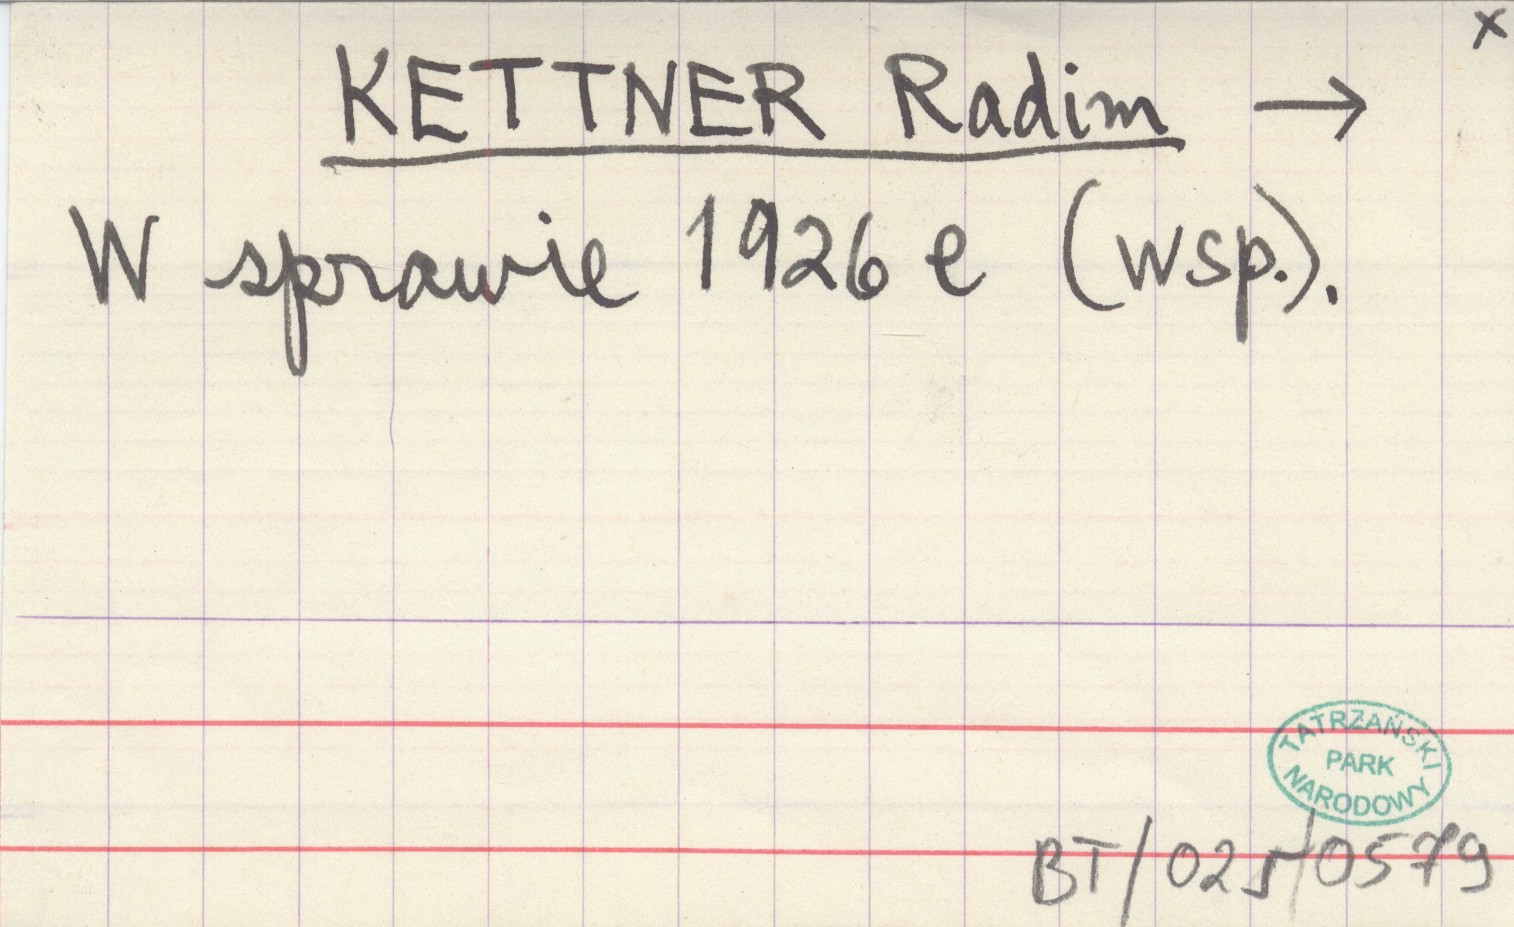 x
KETTNER Radim →
W sprawie 1926 e (wsp.).
TATRZAŃSKI
PARK
NARODOWY
BT/025/0579